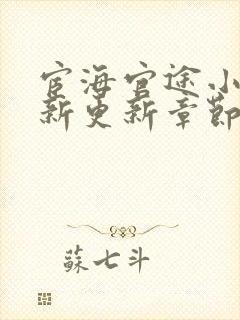 宦海官途小
新更新章節
蘇七斗